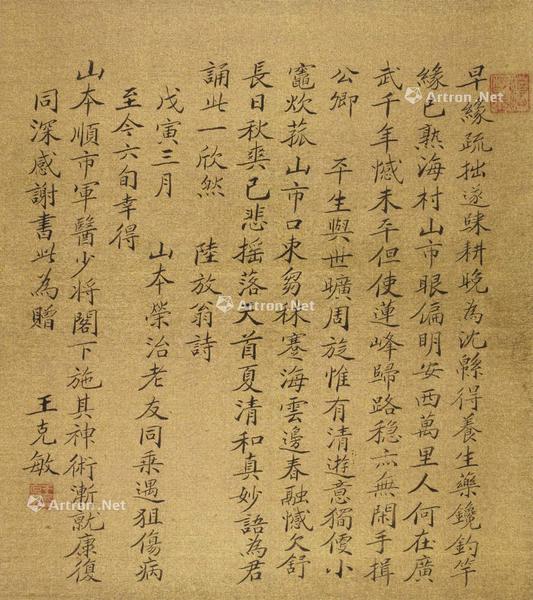 早緣疏拙遂歸耕晚為沈緜得養生藥鑱釣竿
緣已熟海村山市眼偏明安西萬里人何在廣
武千年憾未平但使蓮峰歸路穩亦無閒手揖
公卿 平生與世曠周旋惟有清遊意獨便小
竈炊菰山市口束芻秣蹇海雲邊春融憾欠舒
長日秋爽已悲搖落天首夏清和真妙語為君
誦此一欣然 陸放翁詩
戊寅三月 山本榮治老友同乘遇狙傷病
至今六旬幸得
山本順市軍醫少将閣下施其神術漸就康復
同深感謝書此為贈 王克敏
Artron.Net
Artron.Net
Artron.Net
Artron.Net